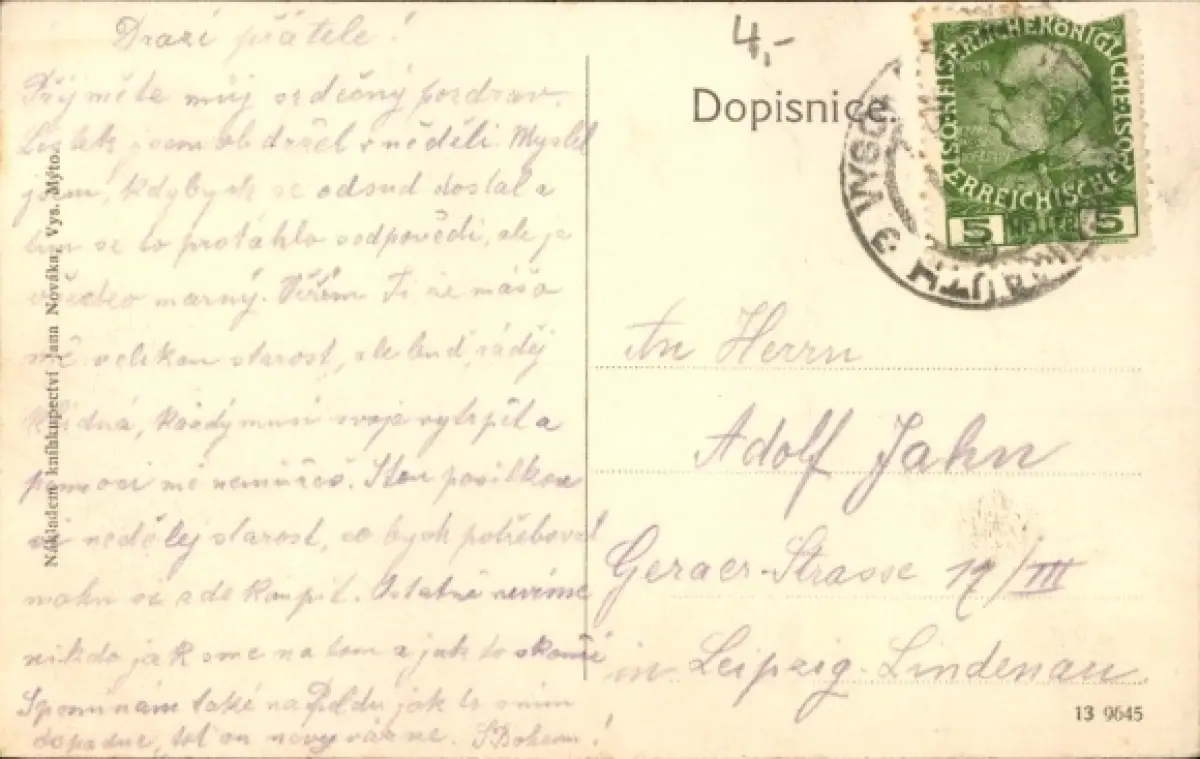 Drazí přátele!
Přijměte můj srdečný pozdrav.
Lístek jsem obdržel v neděli. Myslel
jsem, kdybych se odsud dostal a
tím se to protáhlo s odpovědí, ale je
všecko marný. Věřím Ti že máš o
mě velikou starost, ale buď raděj
klidná, každý musí svoje vytrpět a
pomoci mě nemůžeš. Stou posilkou
si nedělej starost, co bych potřeboval
mohu si zde koupit. Ostatně nevíme
nikdo jak sme na tom a jak to skončí
Spomínám také na Poldu jak to s ním
dopadne, toť on nevyvázne. S Bohem!
Nákladem knihkupectví Jana Nováka, Vys. Mýto.
4,-
Dopisnice.
KAISERLICHE KÖNIGLICHE ÖSTERREICHISCHE
1908
5 HELLER 5
VYSO
MAUTH
3
An Herrn
Adolf Jahn
Geraer-Strasse 17/III
in Leipzig-Lindenau
13 9645